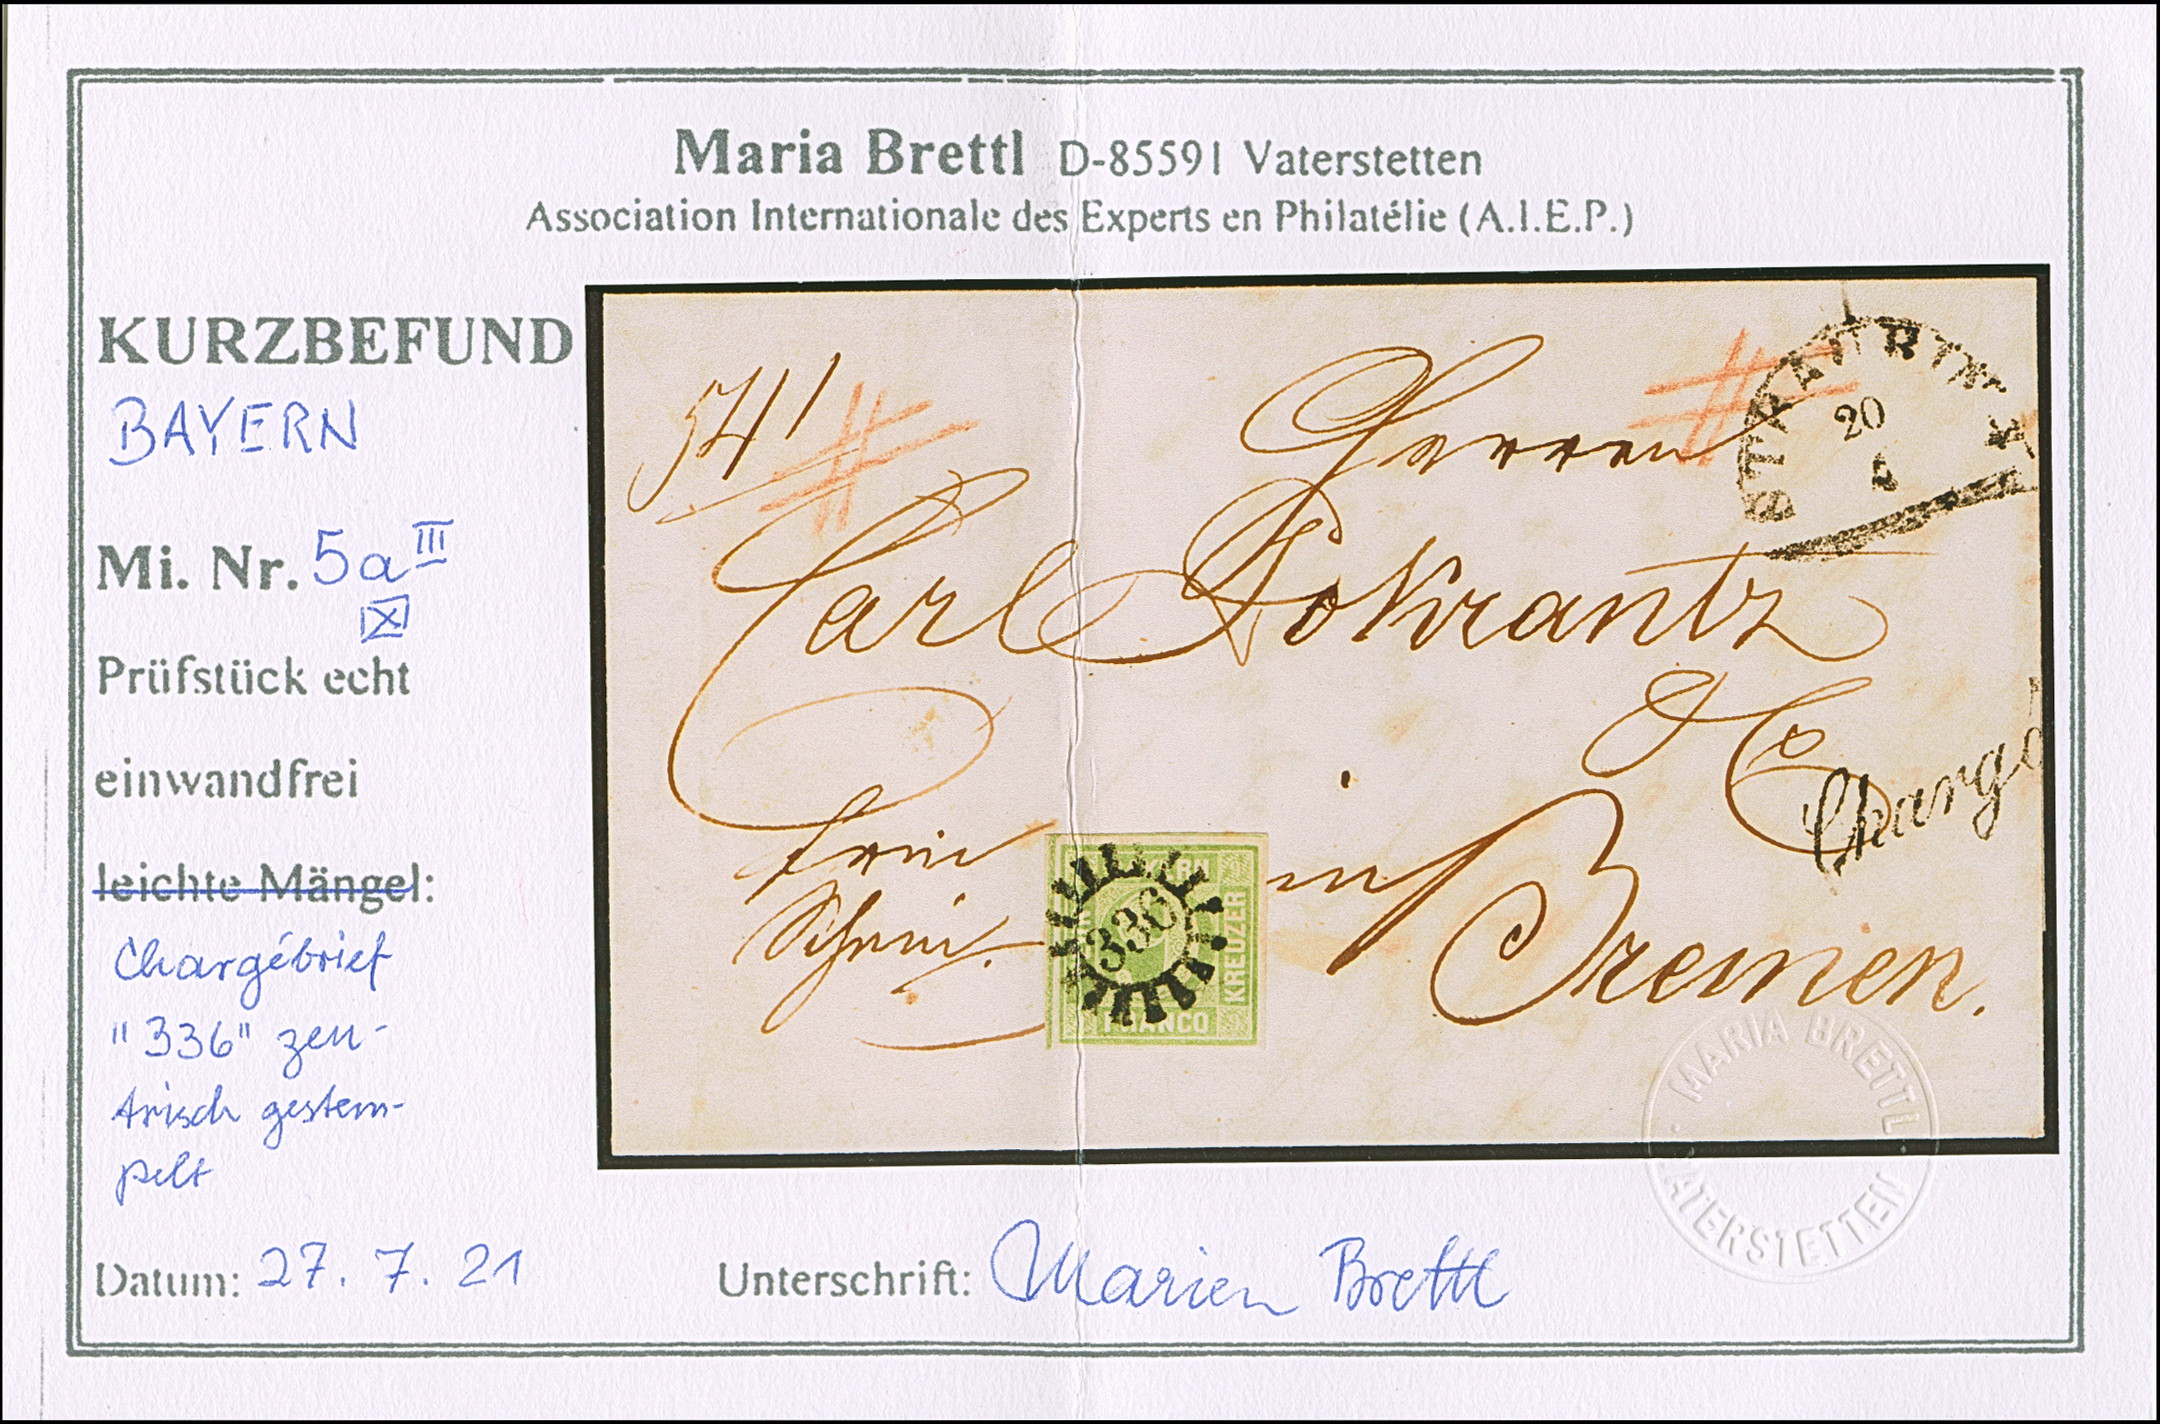 Maria Brettl D-85591 Vaterstetten
Association Internationale des Experts en Philatélie (A.I.E.P.)
KURZBEFUND
BAYERN
Mi. Nr. 5a III
Prüfstück echt
einwandfrei
leichte Mängel:
Chargébrief
"336" zen-
trisch gestem-
pelt
Datum: 27. 7. 21
Unterschrift: Marien Brettl
541
Herren
20
Carl
& Co
Chargé
Schein.
in Bremen.
336
KREUZER
FRANCO
MARIA BRETTL
VATERSTETTEN